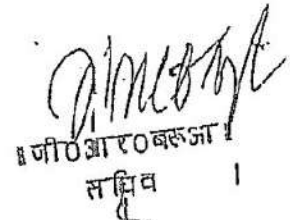 ॥जी०आर०बरूआ॥
सचिव ।